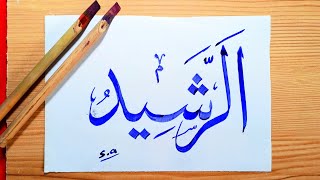 اَلرَّشِيد
s.a